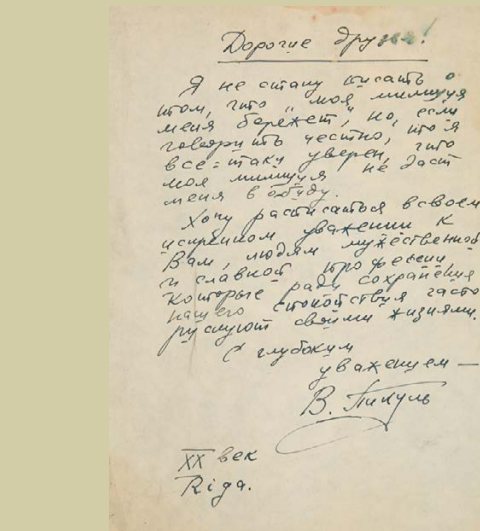 Дорогие друзья!
Я не стану писать о
том, что „моя милиция
меня бережет", но, если
говорить честно, то я
все=таки уверен, что
моя милиция не даст
меня в обиду.
Хочу расписаться в своем
искренном уважении к
Вам, людям мужественной
и славной профессии,
которые ради сохранения
нашего спокойствия часто
рискуют своими жизнями.
С глубоким
уважением —
В. Пикуль
XX век
Riga.